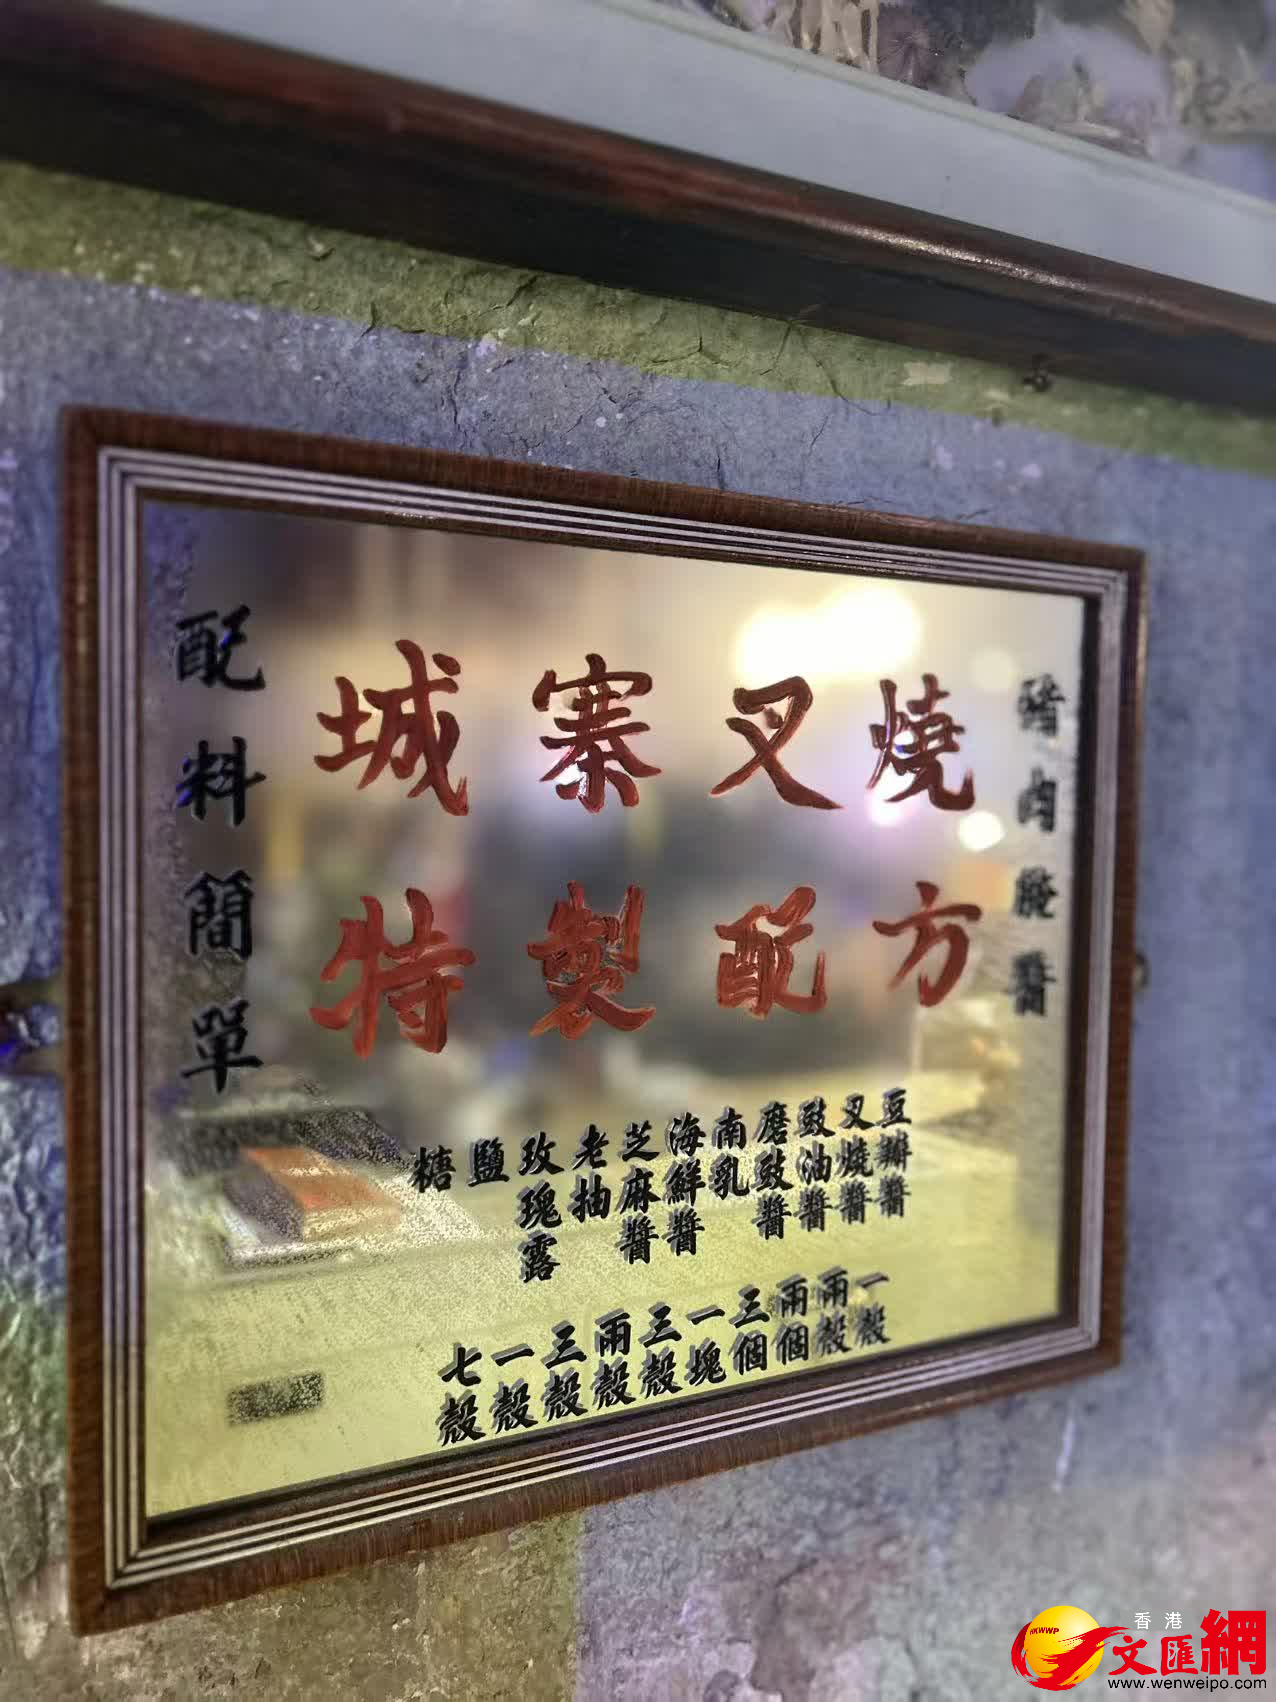 豬肉醃醬
城寨叉燒
特製配方
配料簡單
豆瓣醬
叉燒醬
豉油醬
磨豉醬
南乳
海鮮醬
芝麻醬
老抽
玫瑰露
鹽
糖
一殼
兩殼
兩個
三個
一塊
三殼
兩殼
三殼
一殼
七殼
香港
文匯網
HKWWP
www.wenweipo.com